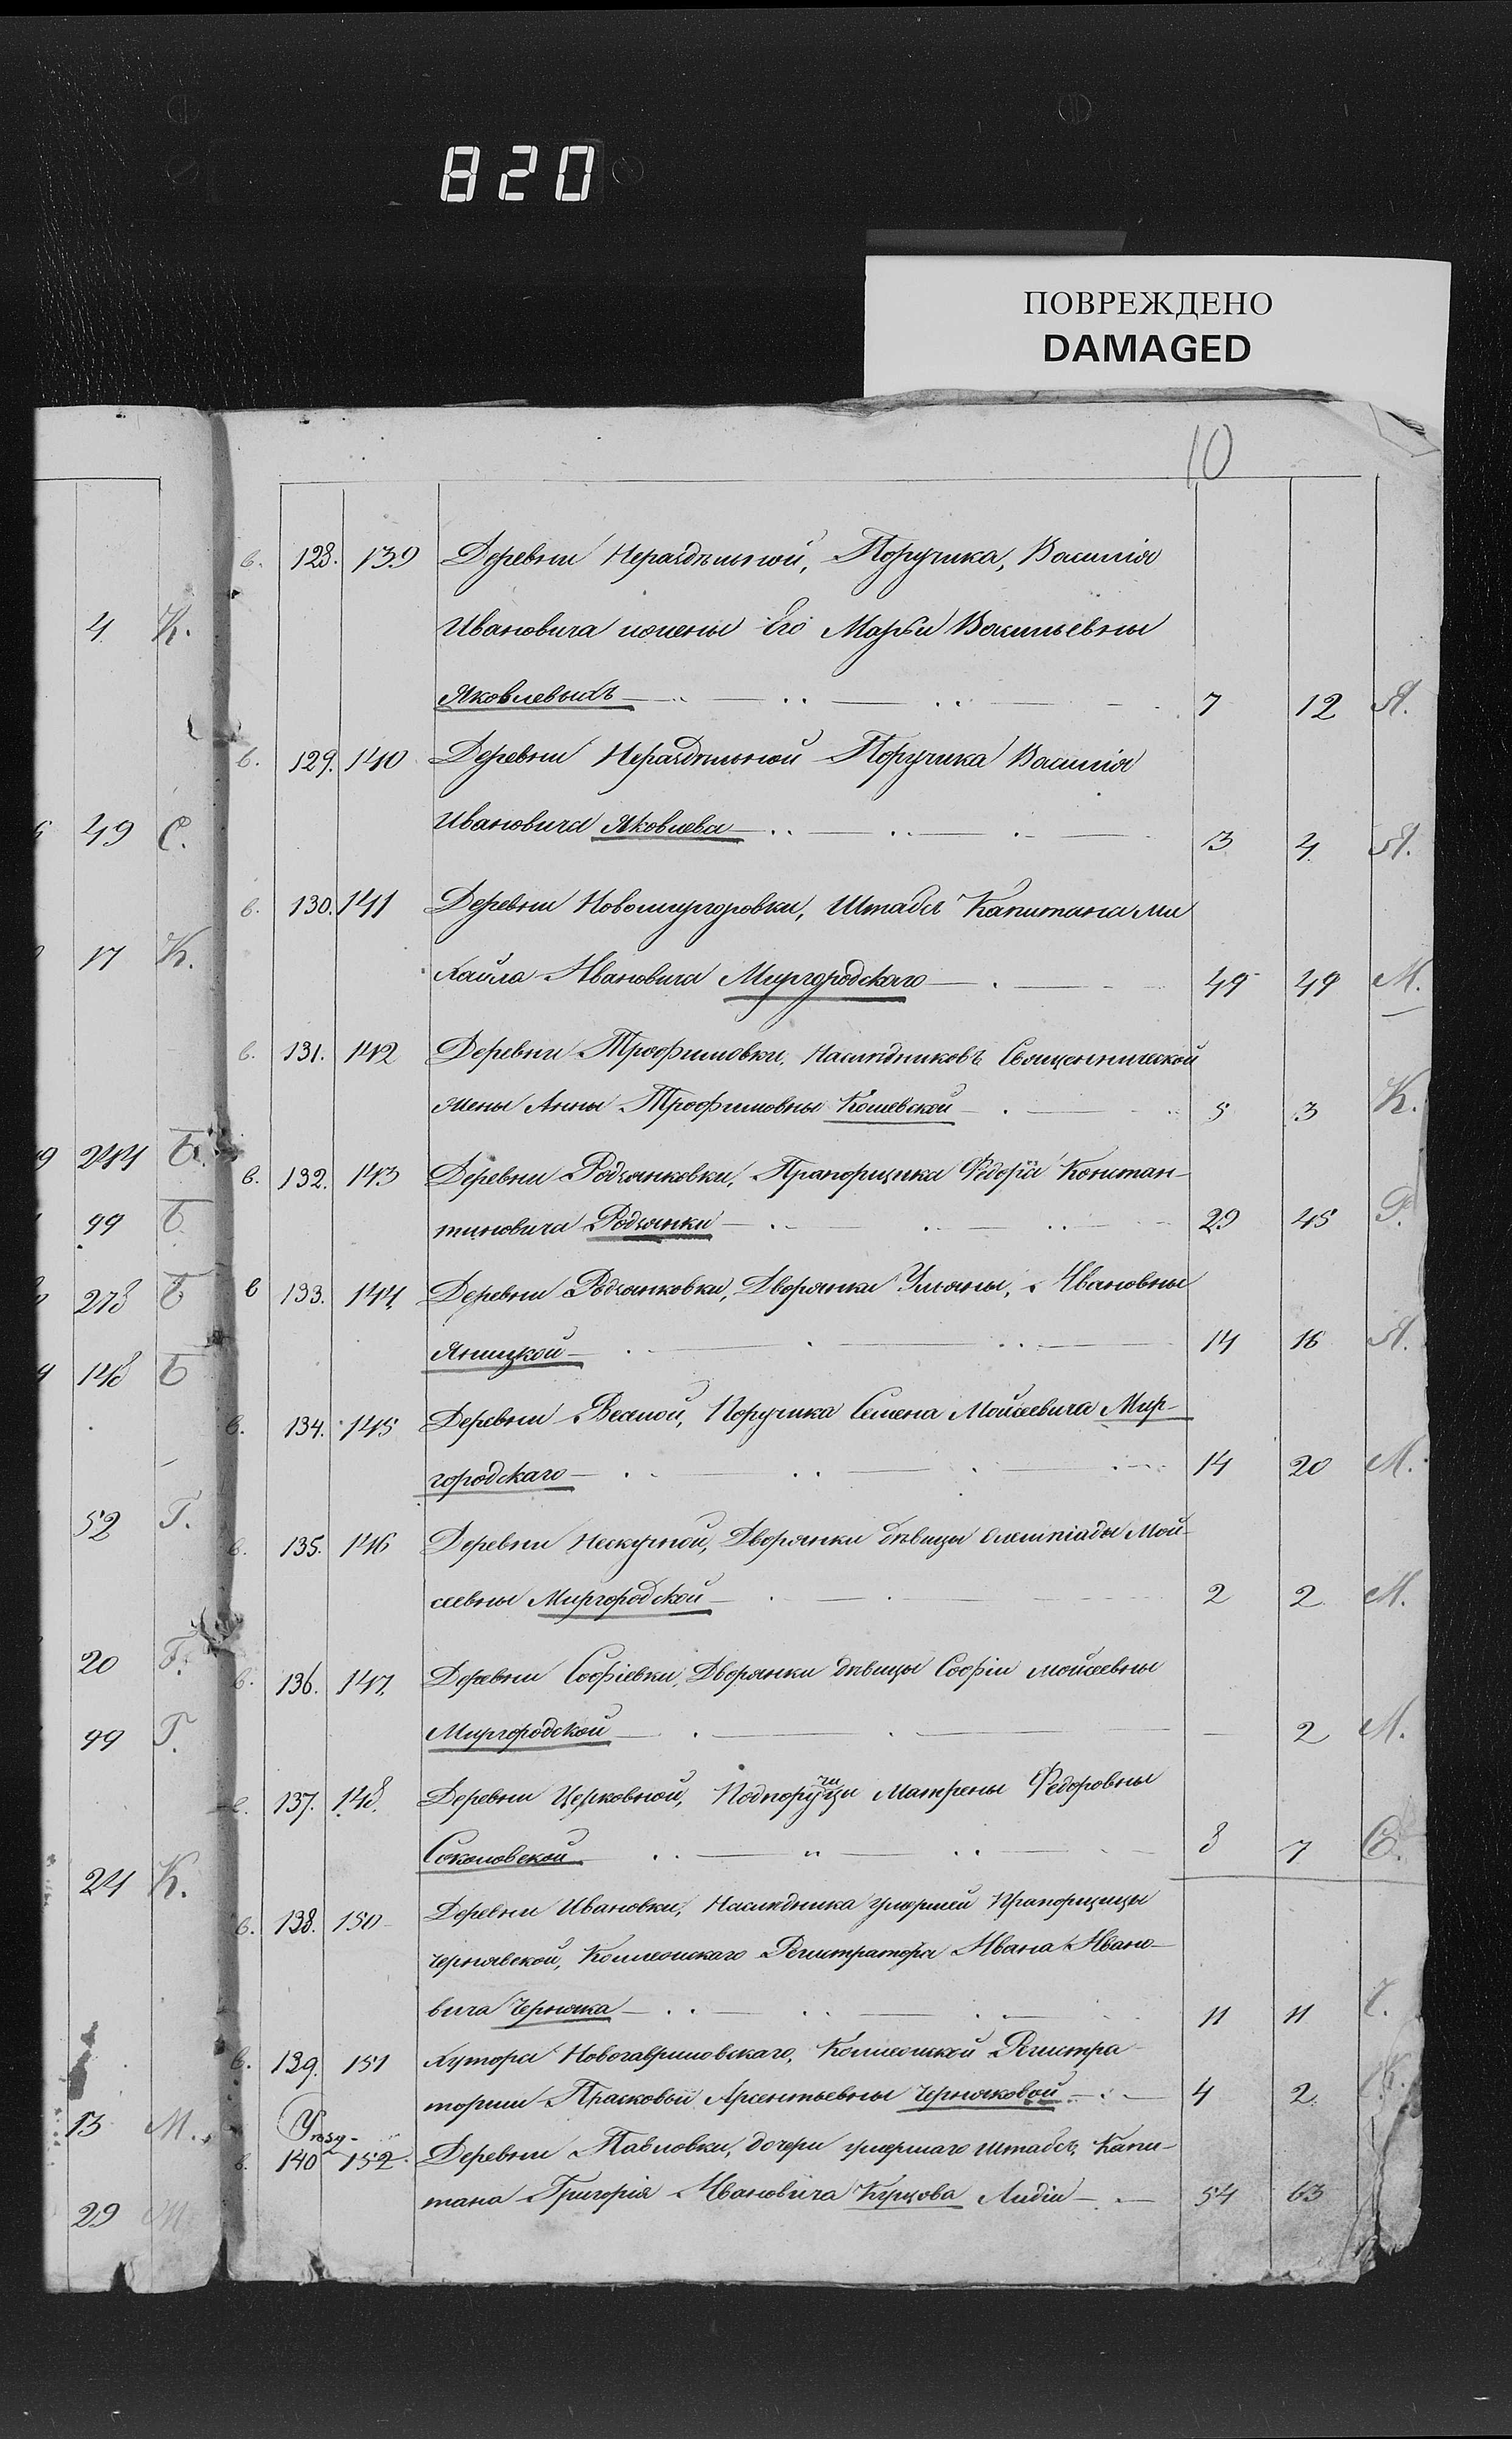 820
ПОВРЕЖДЕНО
DAMAGED
10
4 К.
49 С.
17 К.
244 Б.
99 Б
278 Б
148 Б
52 Г.
20 Г.
99 Г.
24 К.
13 М.
29 М
в. 128. 139 Деревни Нераздѣльной, Поручика, Василія
Ивановича ижены Его Марѳи Васильевны
Яковлевыхъ 7 12 Я.
в. 129. 140 Деревни Нераздѣльной Поручика Василія
Ивановича Яковлева 3 4 Я.
в. 130. 141 Деревни Новомиргоровки, Штабсъ Капитана Ми
хайла Ивановича Миргородскаго 49 49 М.
в. 131. 142 Деревни Трофимовки, Наслѣдниковъ Священнической
Жены Анны Трофимовны Кошевской 5 3 К.
в. 132. 143 Деревни Родзянковки, Прапорщика Ѳедора Констан-
тиновича Родзянки 29 45 Р.
в 133. 144 Деревни Родзянковки, Дворянки Ульяны, Ивановны
Яницкой 14 16 Я.
в. 134. 145 Деревни Веселой, Поручика Семена Мойсеевича Мир-
городскаго 14 20 М.
в. 135. 146 Деревни Нескучной, Дворянки дѣвицы Олимпіады Мой-
сеевны Миргородской 2 2 М.
в. 136. 147. Деревни Софіевки, Дворянки дѣвицы Софіи Мойсеевны
Миргородской 2 М.
в. 137. 148. Деревни Церковной, Подпоручицы Матрены Ѳедоровны
Соколовской 8 7 С.
в. 138. 150 Деревни Ивановки, Наслѣдника умершей Прапорщицы
Чернявской, Коллежскаго Регистратора Ивана Ивано-
вича Черняка 11 11 Ч.
в. 139. 151 Хутора Новогавриловскаго, Коллежской Регистра
торши Прасковьи Арсентьевны Черняковой 4 2
в. 140 152. Деревни Павловки, дочери умершаго Штабсъ Капи-
тана Григорія Ивановича Курцова Лидіи 54 63